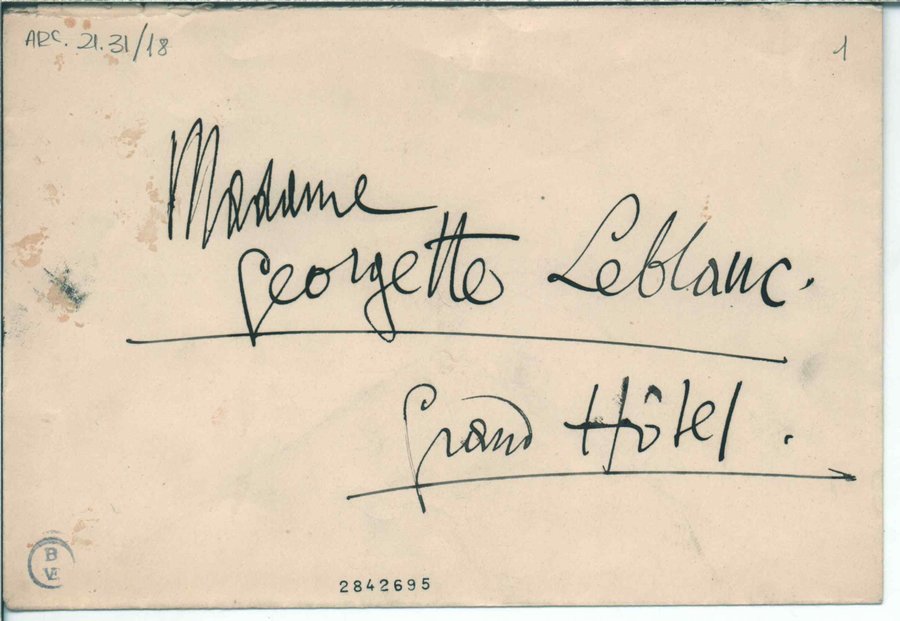 ARC. 21.31/18
1
Madame
Georgette Leblanc.
Grand Hôtel.
B
VE
2842695